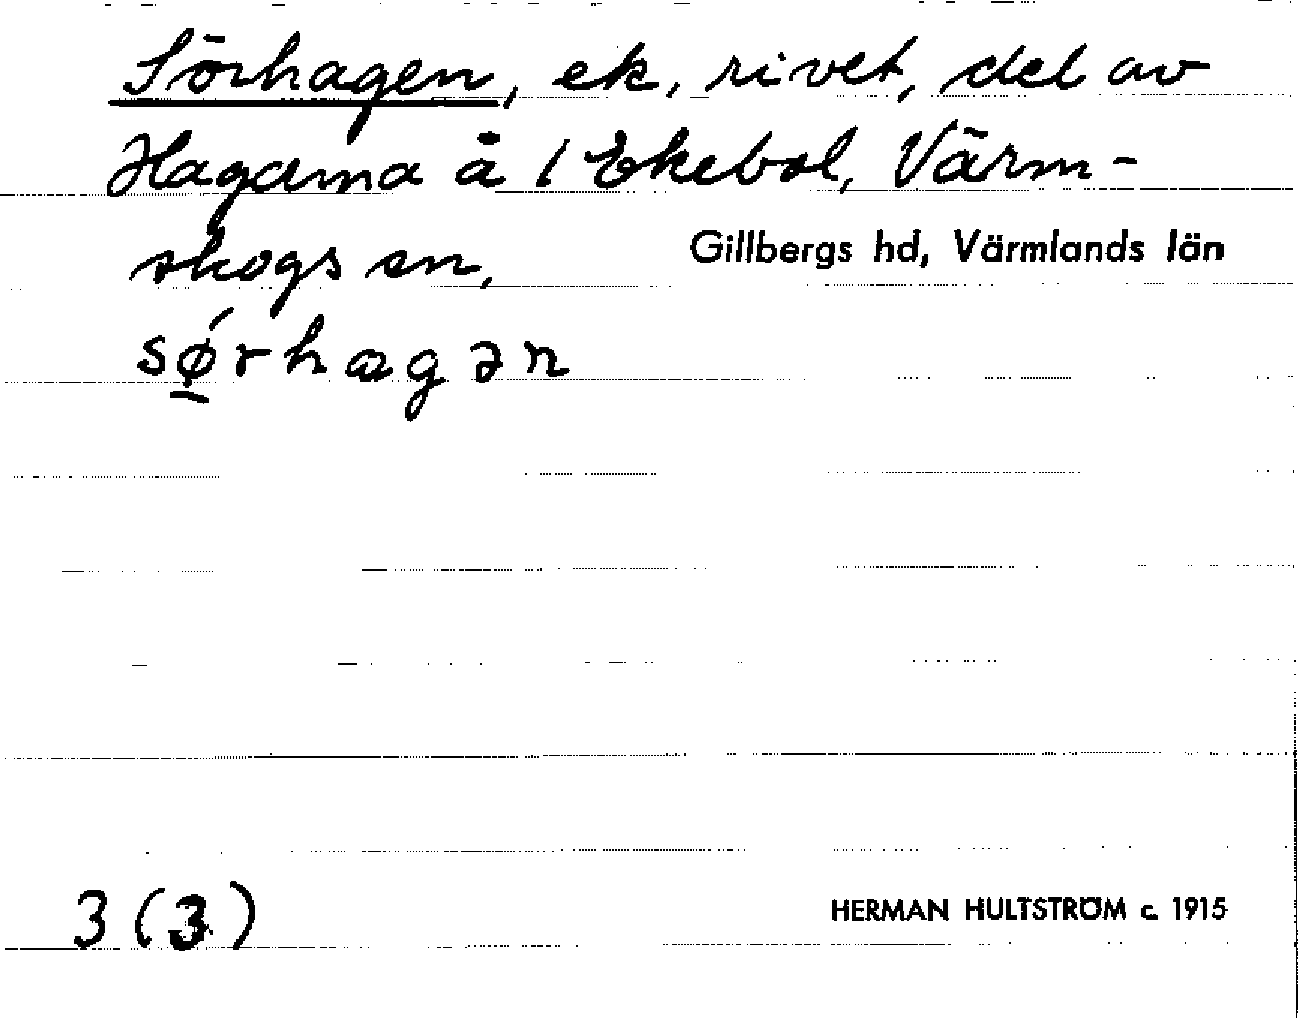 Sörhagen, ek, rivet, del av
Hagarna å 1 Ekebol, Värm-
skogs sn,
Gillbergs hd, Värmlands län
sǿ̱rhagən
3 (3)
HERMAN HULTSTRÖM c. 1915